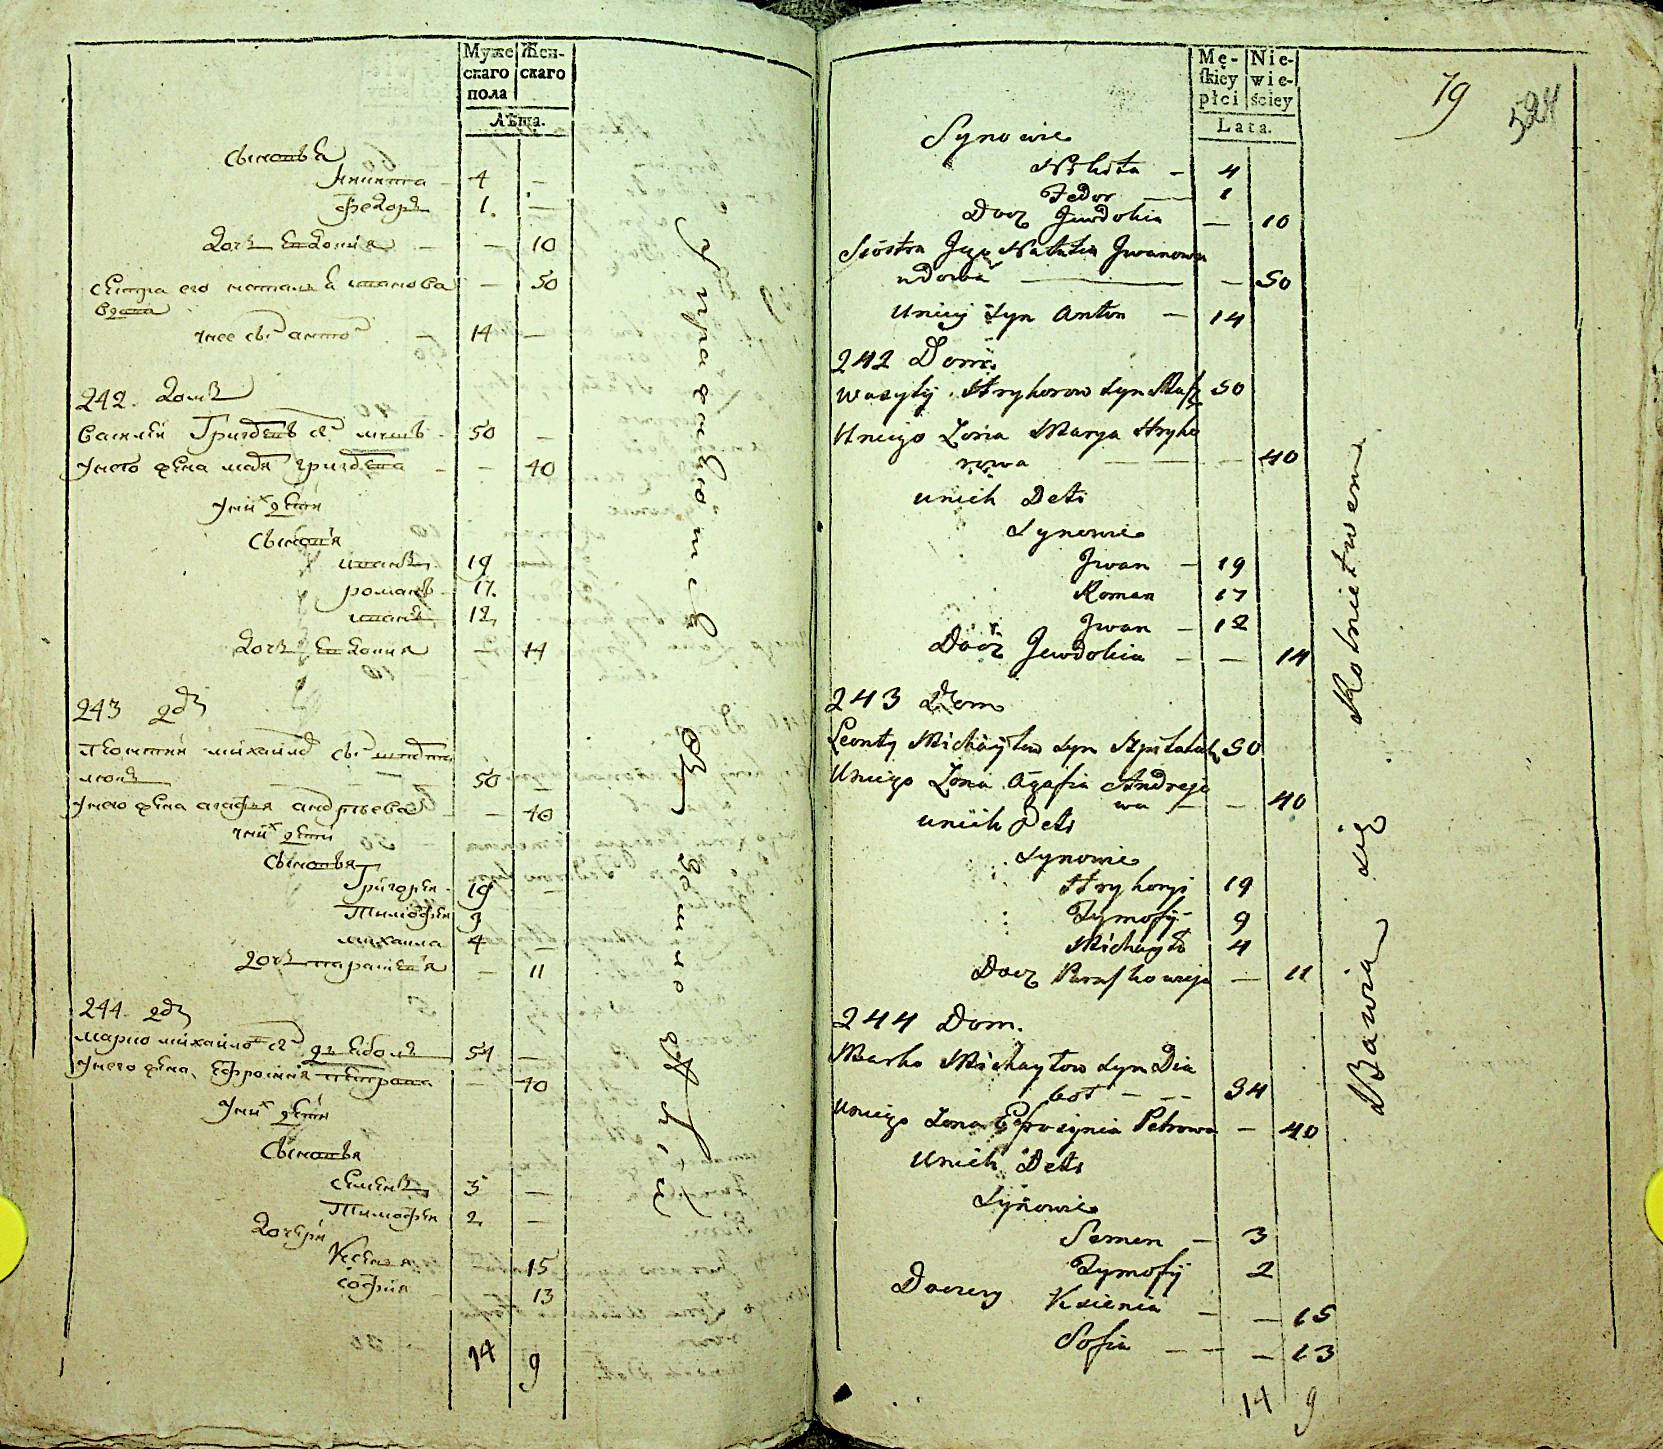 Муже- Жен-
скаго скаго
пола
Лѣта.
Сыновья
Никита - 4 -
Федоръ 1. -
Дочь Евдокия - - 10
Сестра его наталья иванова - 50
вдова
у нее сынъ антонъ 14 -
242. домъ
Василей Григоревъ сынъ 50 -
у него жена марья григорева - - 40
у них дети
Сыновья
иванъ 19
романъ 17.
иванъ 12,
Дочь Евдокия - 14
243 дом
леонтий михайловъ сынъ
50 -
у него жена агафия андреева - 40
у них дети
Сыновья
Григорей - 19 -
Тимофей 9
михаила 4 -
Дочь парасковея - 11
244. дом
марко михайловъ сынъ дияболъ 54 -
у него жена Ефросиния петрова - 40
у них дети
Сыновья
семенъ 3 -
Тимофей 2, -
Дочери
Ксения 15
софия 13
14 9
Упражняются
землед
Mę- Nie-
skiey wie-
płci ściey
Lata.
79 524
Synowie
Nikita - 4
Fedor - 1
Docz Jewdokia - 10
Siostra Jego Natalia Jwanowa
wdowa - - 50
Uniey Syn Anton - 14
242 Dom.
Wasyly Hryhorow Syn 50
Uniego Zona Marya Hryho
rowa - - - 40
unich Deti
Synowie
Jwan - 19
Roman 17
Jwan - 12
Docz Jewdokia - - 14
243 Dom
Leonty Michayłow Syn 50
Uniego Zona Agafia Andreje
wa - - 40
unich Deti
Synowie
Hryhoryi 19
Tymofiy - 9
Michayło 4
Docz Paraskowieja - 11
244 Dom.
Marko Michayłow Syn Dia
boł - - - 54
Uniego Zona Efrozynia Petrowa - 40
Unich Deti
Synowie
Semen - 3
Tymofiy 2
Doczery Ksienia - - 15
Sofia - - - 13
14 9
Bawia się Rolnictwem